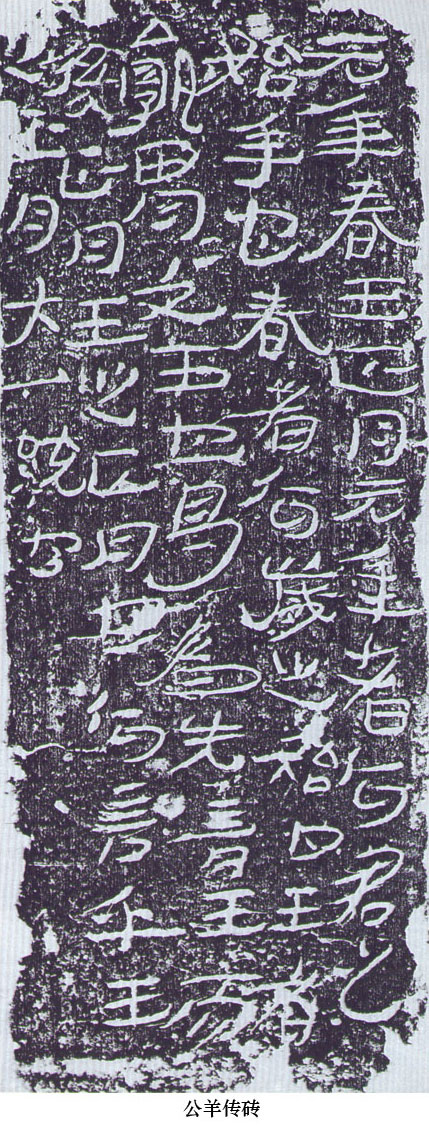 元年春王正月元年者何君之
始年也春者何歲之始也王者
孰胃〻文王也曷為先言王而
後正月王之正月也何言乎王
之正月大一統也
公羊传砖